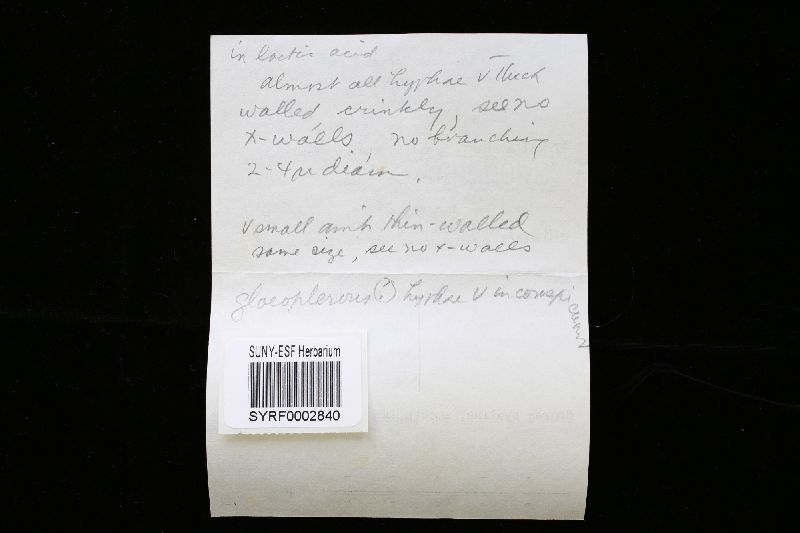 in lactic acid
almost all hyphae v thick
walled crinkly, see no
x-walls, no branching
2-4µ diam.
v small am't thin-walled
same size, see no x-walls
gloeoplerous(?) hyphae v inconspicuous
SUNY-ESF Herbarium
SYRF0002840